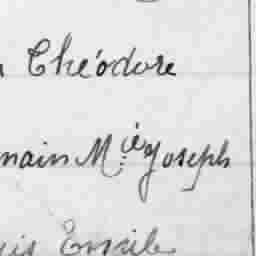 Théodore
main M.ie Joseph
Emile